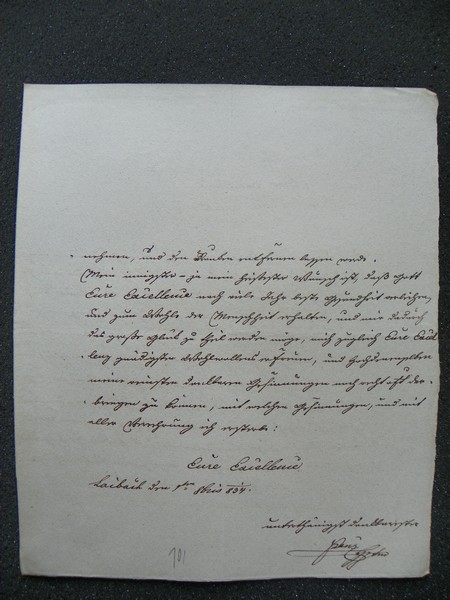 nehmen, und den Kranken entfernen lassen werde.
Mein innigster – ja mein heißester Wunsch ist, daß Gott
Eure Excellenz noch viele Jahre beste Gesundheit verleihen,
und zum Wohle der Menschheit erhalten, und mir dadurch
das große Glück zu theil werden möge, mich zugleich Eure Excel
lenz gnädigsten Wohlwollens erfreuen, und Hochdenselben
meine reinsten dankbaren Gesinnungen noch recht oft dar
bringen zu können, mit welchen Gesinnungen, und mit
aller Verehrung ich ersterbe:
Eure Excellenz
Laibach den 834.
unterthänigst dankbarster
Franz
101